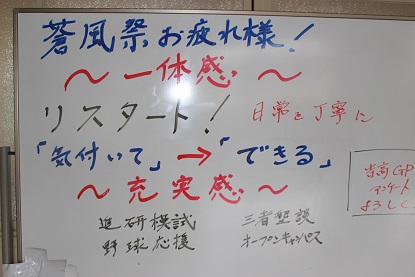 蒼風祭お疲れ様!
～一体感～
リスタート! 日常を丁寧に
「気付いて」→「できる」
～充実感～
進研模試 三者懇談
野球応援 オープンキャンパス
アンケート
よろしく